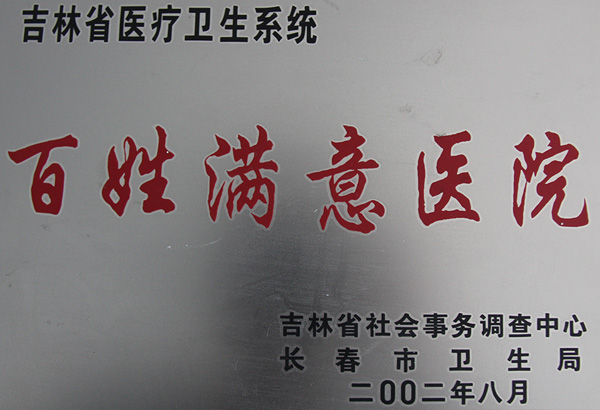 吉林省医疗卫生系统
百姓满意医院
吉林省社会事务调查中心
长春市卫生局
二00二年八月